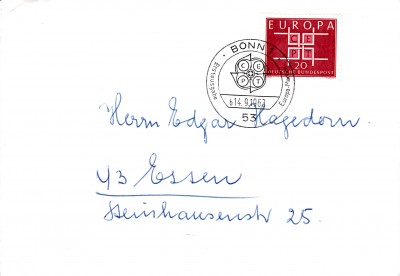 EUROPA
CEPT
20
DEUTSCHE BUNDESPOST
BONN 1
Erstausgabe
CEPT
14.9.1963
53
Herrn Edgar Hagedorn.
43 Essen
Steinhausenstr 25.